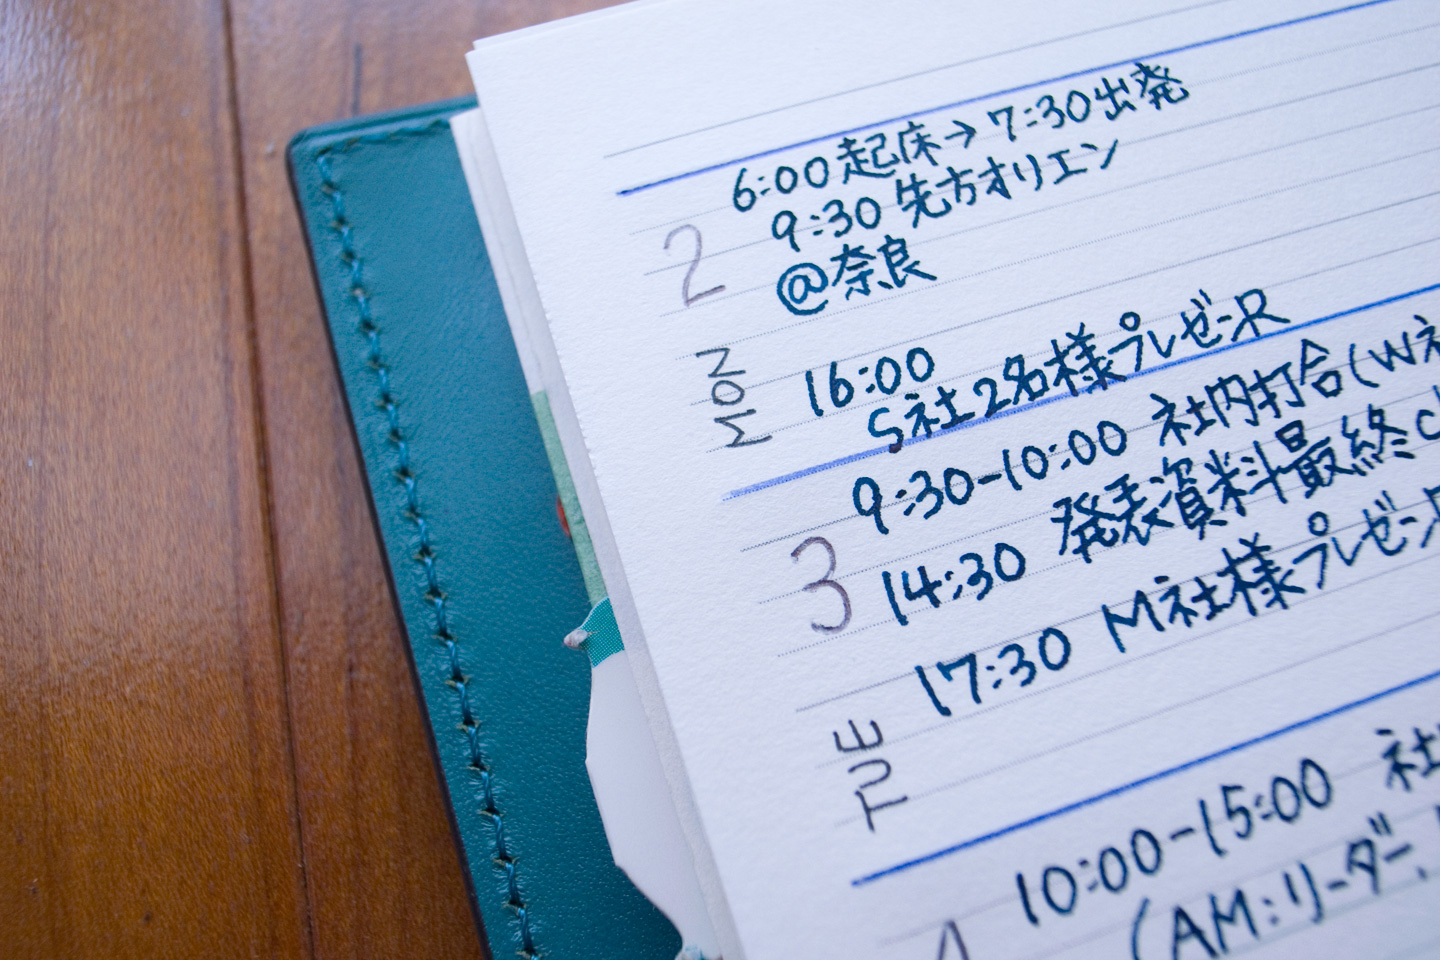 6:00起床→7:30出発
9:30 先方オリエン
@奈良
2
MON
16:00
S社2名様プレゼ-R
9:30-10:00 社内打合(W
14:30 発表資料最終
3
17:30 M社様プレゼ-R
TUE
10:00-15:00 社
(AM:リーダー.
4